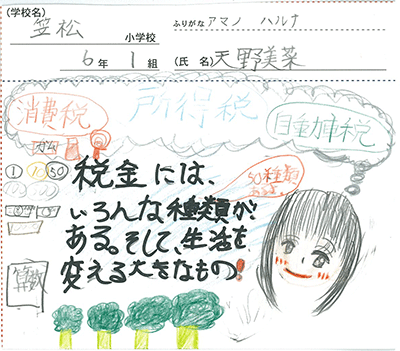 (学校名)
笠松 小学校
ふりがな アマノ ハルナ
6年 1組
(氏名) 天野美菜
消費税
所得税
自動車税
ガム
1 10 50
税金には、
いろんな種類が
ある。そして、生活を
変える大きなもの!
50種類
ある。
算数